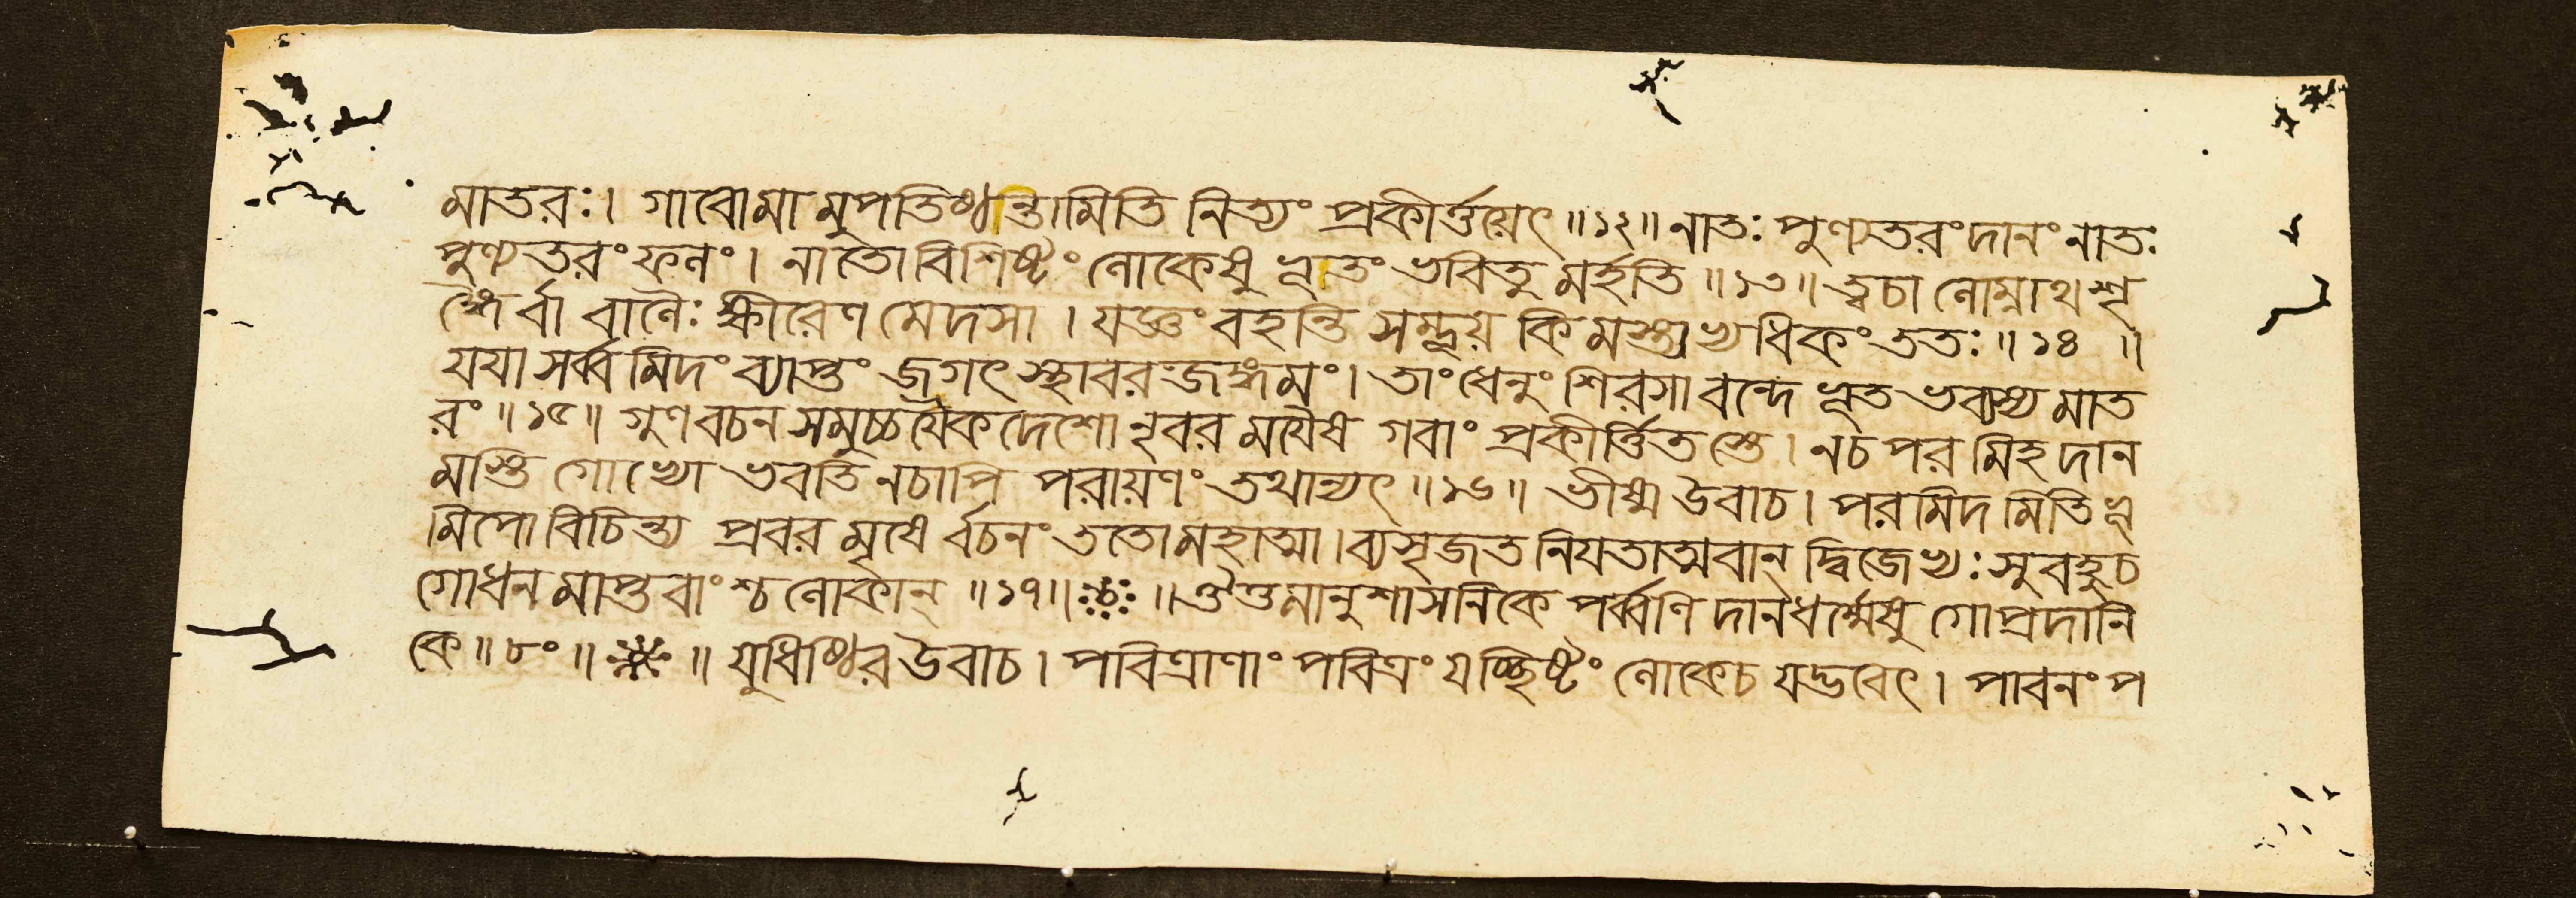 মাতরঃ। গাবোমা মুপতিষ্ঠন্ত্যামিতি নিত্যং প্রকীর্ত্তয়েৎ॥১২॥ নাতঃ পুণ্যতরং দানং নাতঃ
পুণ্যতরং ফলং। নাতো বিশিষ্টং লোকেষু ভূতং ভবিতু মর্হতি॥১৩॥ ত্বচা লোম্নাথ শৃ
ঙ্গৈর্বা বালৈঃ ক্ষীরেণ মেদসা। যজ্ঞং বহন্তি সম্ভূয় কিমস্ত্যভ্যধিকং ততঃ॥১৪॥
যযা সর্ব্বমিদং ব্যাপ্তং জগৎ স্থাবরজঙ্গমং। তাং ধেনুং শিরসা বন্দে ভূত ভব্যস্য মাত
রং॥১৫॥ গুণ বচন সমুচ্চয়ৈকদেশো নৃবর ময়ৈষ গবাং প্রকীর্ত্তিতস্তে। নচ পরমিহ দান
মস্তি গোভ্যো ভবতি নচাপি পরায়ণং তথান্যৎ॥১৬॥ ভীষ্ম উবাচ। পরমিদ মিতি ভূ
মিপো বিচিন্ত্য প্রবর মৃষে র্বচনং ততো মহাত্মা। ব্যসৃজত নিযতাত্মবান্ দ্বিজেভ্যঃ সুবহু চ
গোধন মাপ্তবাংশ্চ লোকান্॥১৭॥ঃছঃ॥ ঔত্তমানুশাসনিকে পর্ব্বণি দানধর্ম্মেষু গোপ্রদানি
কে॥৮০॥ ॥ যুধিষ্ঠির উবাচ। পবিত্রাণাং পবিত্রং যচ্ছিষ্টং লোকেচ যদ্ভবেৎ। পাবনং প